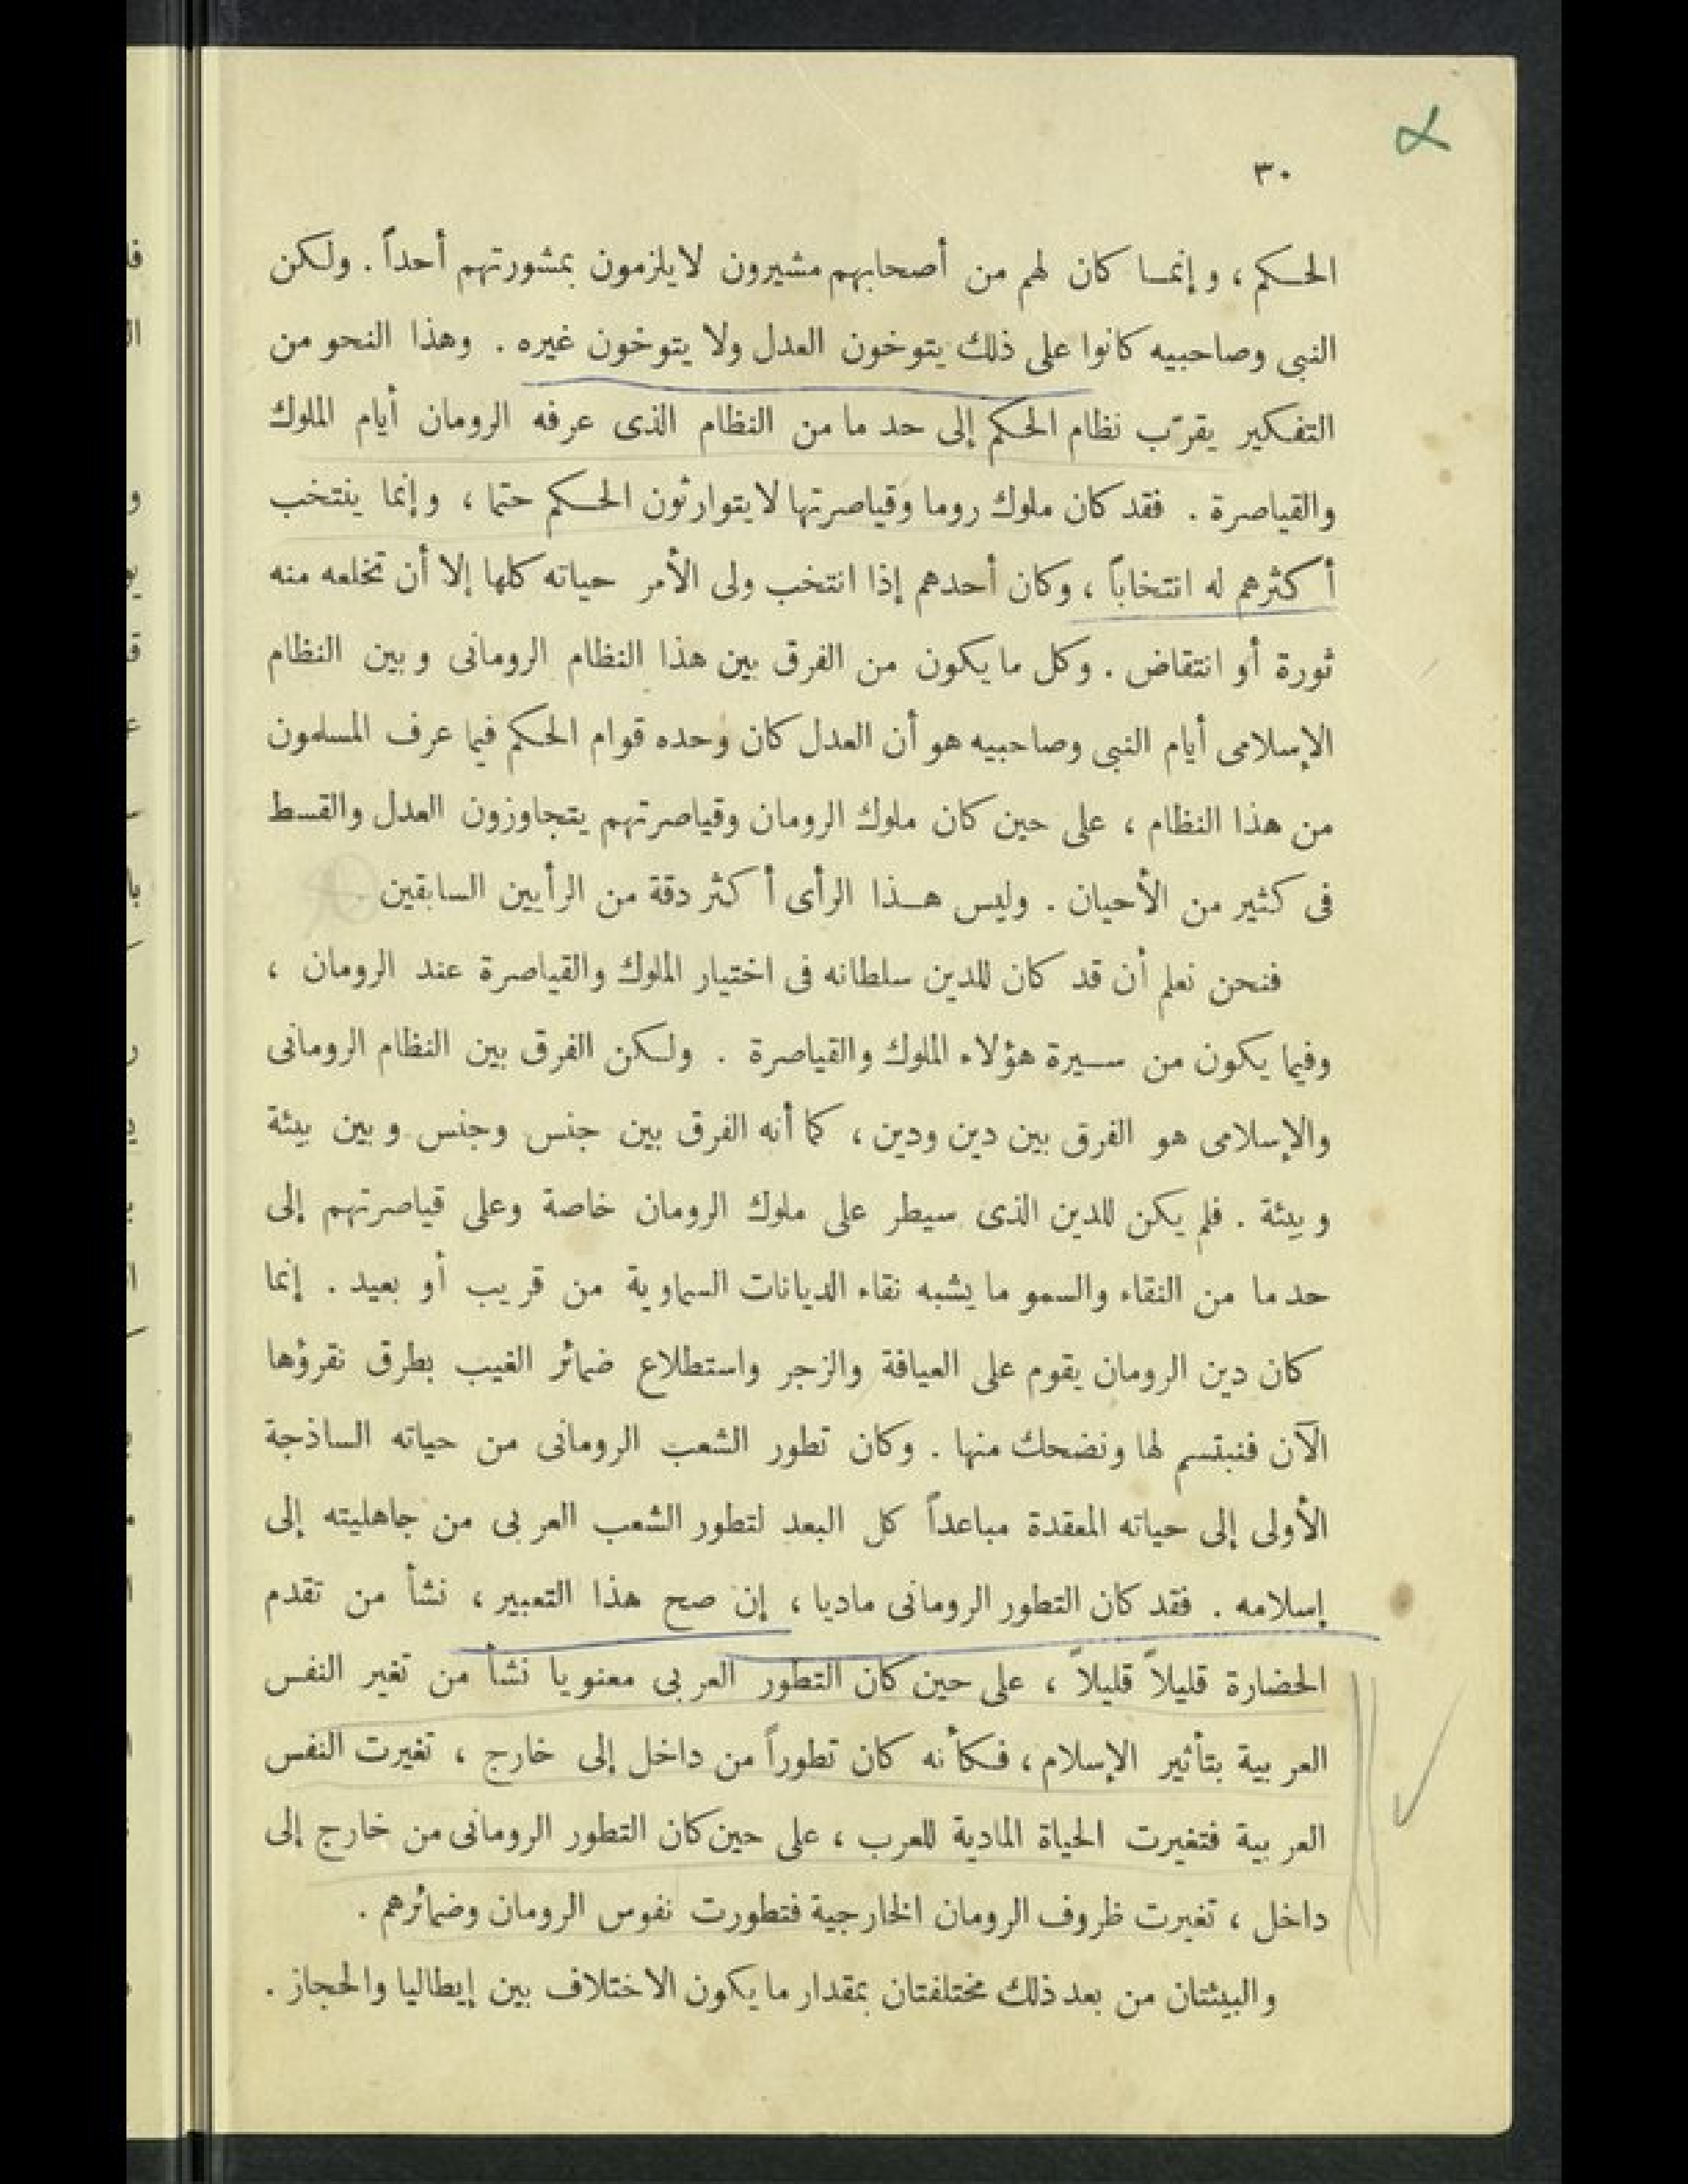 ٣٠
الحكم ، وإنما كان لهم من أصحابهم مشيرون لا يلزمون بمشورتهم أحداً . ولكن
النبى وصاحبيه كانوا على ذلك يتوخون العدل ولا يتوخون غيره . وهذا النحو من
التفكير يقرّب نظام الحكم إلى حد ما من النظام الذى عرفه الرومان أيام الملوك
والقياصرة . فقد كان ملوك روما وقياصرتها لا يتوارثون الحكم حتما ، وإنما ينتخب
أكثرهم له انتخاباً ، وكان أحدهم إذا انتخب ولى الأمر حياته كلها إلا أن تخلعه منه
ثورة أو انتقاض . وكل ما يكون من الفرق بين هذا النظام الرومانى وبين النظام
الإسلامى أيام النبى وصاحبيه هو أن العدل كان وحده قوام الحكم فيما عرف المسلمون
من هذا النظام ، على حين كان ملوك الرومان وقياصرتهم يتجاوزون العدل والقسط
فى كثير من الأحيان . وليس هذا الرأى أكثر دقة من الرأيين السابقين .
فنحن نعلم أن قد كان للدين سلطانه فى اختيار الملوك والقياصرة عند الرومان ،
وفيما يكون من سيرة هؤلاء الملوك والقياصرة . ولكن الفرق بين النظام الرومانى
والإسلامى هو الفرق بين دين ودين ، كما أنه الفرق بين جنس وجنس وبين بيئة
وبيئة . فلم يكن للدين الذى سيطر على ملوك الرومان خاصة وعلى قياصرتهم إلى
حد ما من النقاء والسمو ما يشبه نقاء الديانات السماوية من قريب أو بعيد . إنما
كان دين الرومان يقوم على العيافة والزجر واستطلاع ضمائر الغيب بطرق نقرؤها
الآن فنبتسم لها ونضحك منها . وكان تطور الشعب الرومانى من حياته الساذجة
الأولى إلى حياته المعقدة مباعداً كل البعد لتطور الشعب العربى من جاهليته إلى
إسلامه . فقد كان التطور الرومانى ماديا ، إن صح هذا التعبير ، نشأ من تقدم
الحضارة قليلاً قليلاً ، على حين كان التطور العربى معنويا نشأ من تغير النفس
العربية بتأثير الإسلام ، فكأنه كان تطوراً من داخل إلى خارج ، تغيرت النفس
العربية فتغيرت الحياة المادية للعرب ، على حين كان التطور الرومانى من خارج إلى
داخل ، تغيرت ظروف الرومان الخارجية فتطورت نفوس الرومان وضمائرهم .
والبيئتان من بعد ذلك مختلفتان بمقدار ما يكون الاختلاف بين إيطاليا والحجاز .